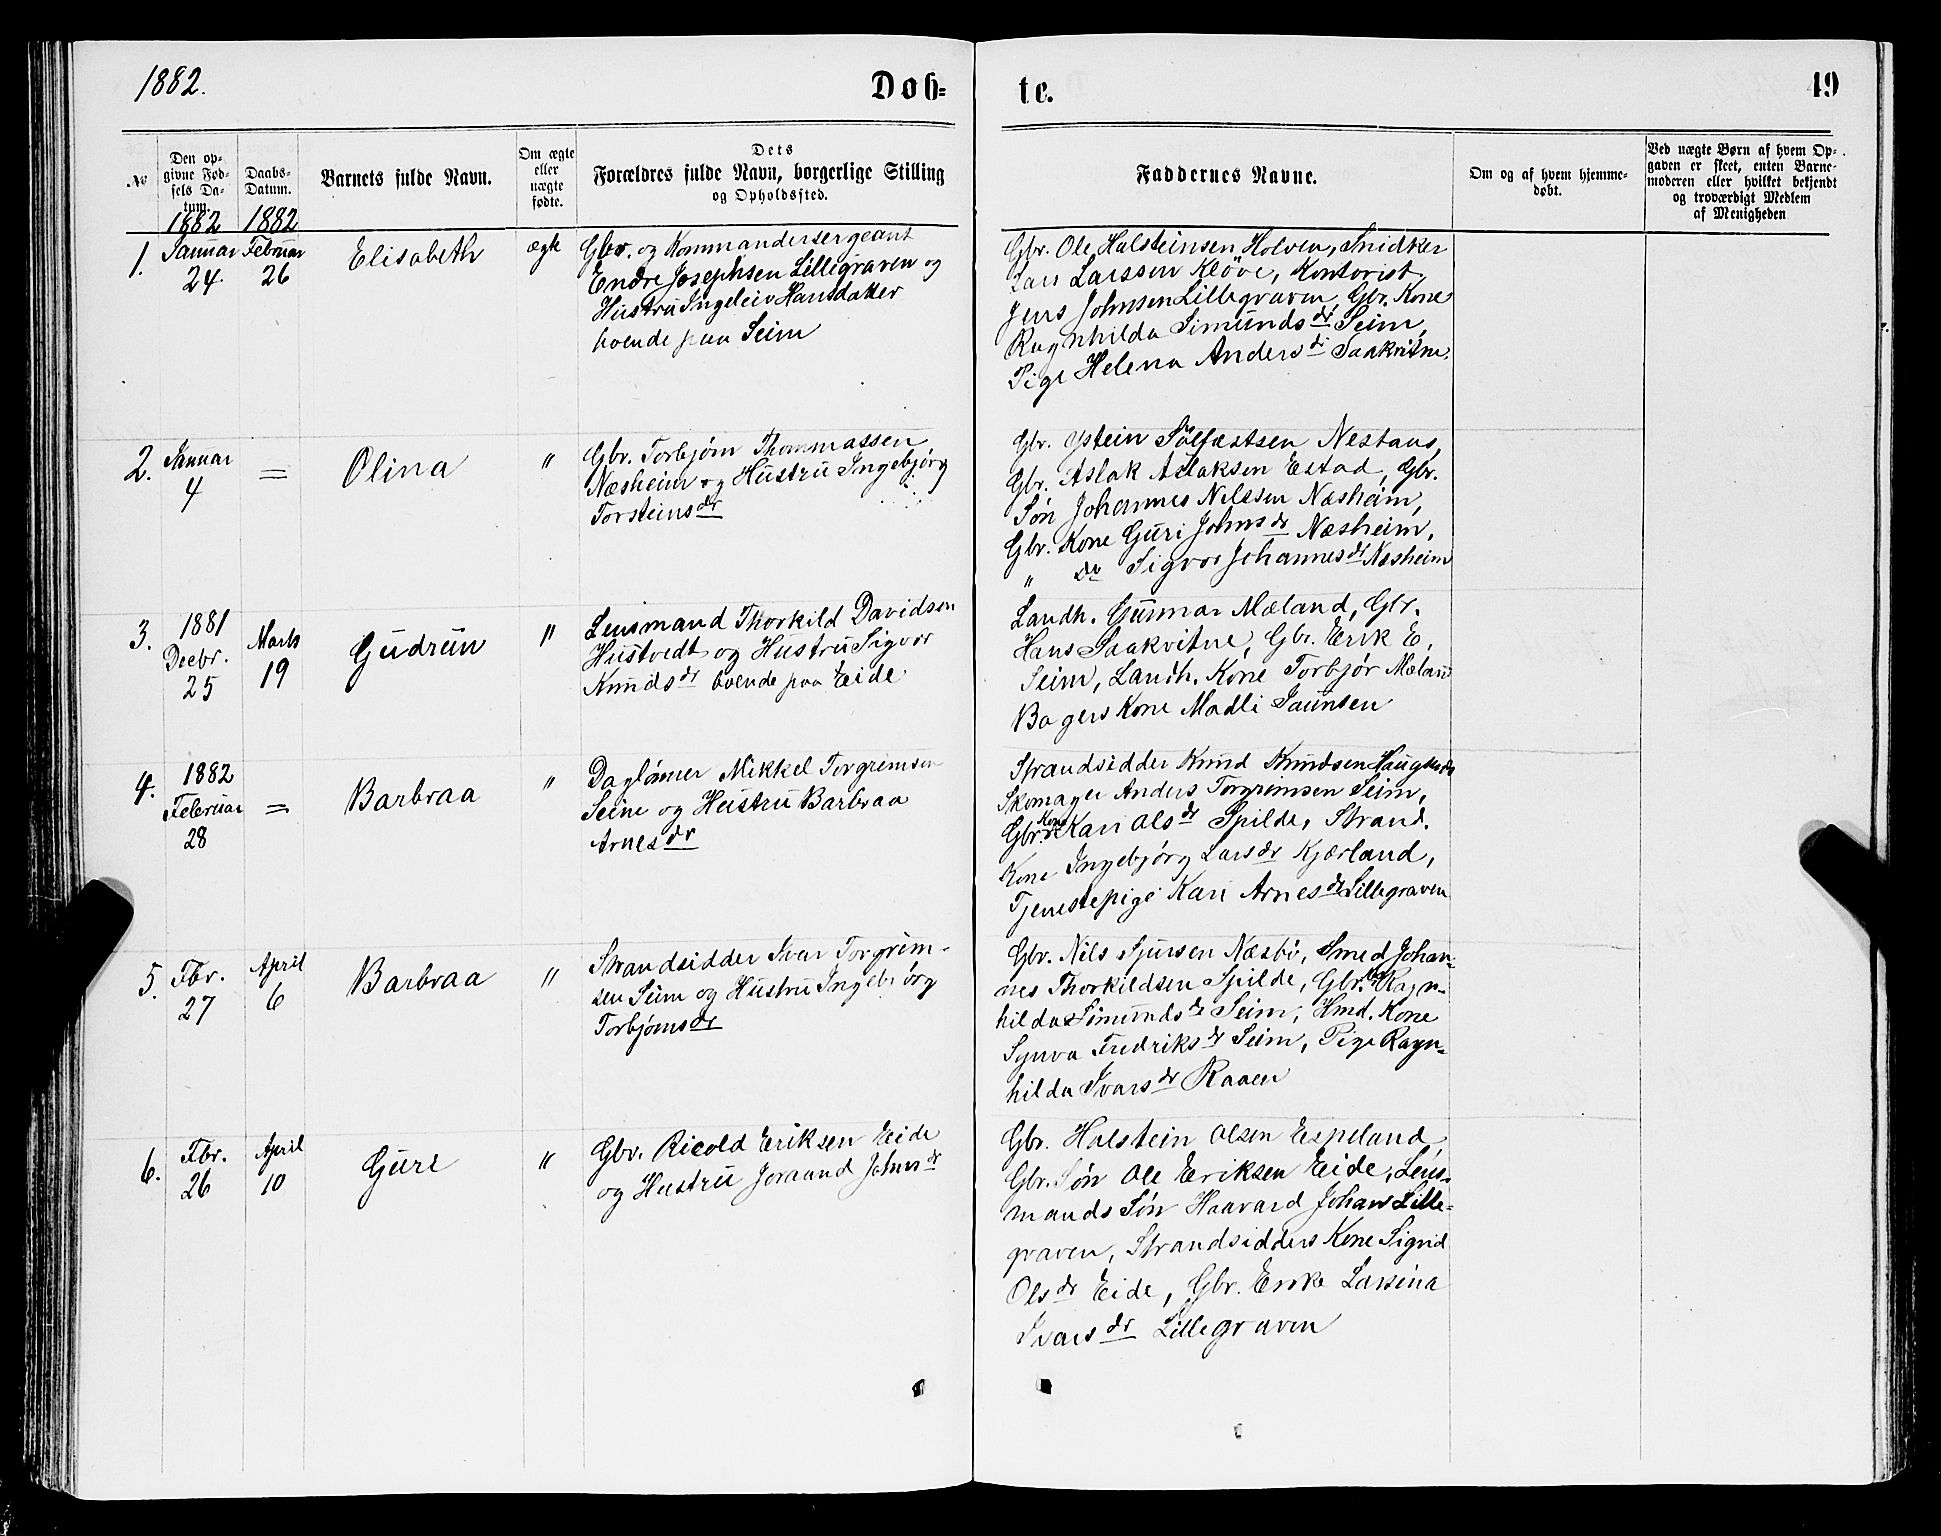 1882.
Døb-
te.
49
No
Den op-
givne Fød-
sels Da-
tum.
1882
Daabs-
Datum.
1882
Barnets fulde Navn.
Om ægte
eller
uægte
fødte.
Dets
Forældres fulde Navn, borgerlige Stilling
og Opholdssted.
Faddernes Navne.
Om og af hvem hjemme-
døbt.
Ved uægte Børn af hvem Op-
gaven er skeet, enten Barne-
moderen eller hvilket bekjendt
og troværdigt Medlem
af Menigheden
1.
Januar
24
Februar
26
Elisabeth
ægte
Gbr. og Kommandersergeant
Endre Josephsen Lillegraven og
Hustru Ingeleiv Hansdatter
boende paa Seim
Gbr. Ole Halsteinsen Holven, Snidker
Lars Larssen Kløve, Kontorist
Jens Johnsen Lillegraven, Gbr. Kone
Ragnhilda Simundsdr Seim,
Pige Helena Andersdr Saakvitne.
2.
Januar
4
=
Olina
"
Gbr. Torbjørn Thommassen
Næsheim og Hustru Ingebjørg
Torsteinsdr
Gbr. Ystein Sølfæstsen Nestaas,
Gbr. Aslak Aslaksen Estad, Gbr.
Søn Johannes Nilssen Næsheim,
Gbr. Kone Guri Johnsdr Næsheim,
" do Sigvor Johannesdr Næsheim
3.
1881
Decbr.
25
Marts
19
Gudrun
"
Lensmand Thorkild Davidsen
Hustvedt og Hustru Sigvor
Knudsdr boende paa Eide
Landh. Gunnar Mæland, Gbr.
Hans Saakvitne, Gbr. Erik E.
Seim, Landh. Kone Torbjør Mæland
Bagers Kone Madli Jaunsen
4.
1882
Februar
28
=
Barbraa
"
Dagløner Mikkel Torgrimsen
Seim og Hustru Barbraa
Arnesdr
Strandsidder Knud Knudsen
Skomager Anders Torgrimsen Seim,
Gbr. Kone Kari Olsdr Spilde, Strand.
Kone Ingebjørg Larsdr Kjærland,
Tjenestepige Kari Arnesdr Lillegraven
5.
Fbr.
27
April
6
Barbraa
"
Strandsidder Ivar Torgrim-
sen Seim og Hustru Ingebjørg
Torbjørnsdr
Gbr. Nils Sjursen Næsbø, Smed Johan-
nes Thorkildsen Spilde, Gbr. Ko Ragn-
hilda Simundsdr Seim, Hmd. Kone
Synva Fredriksdr Seim, Pige Ragn-
hilda Ivarsdr Raaen
6.
Fbr.
26
April
10
Guri
"
Gbr. Ricold Eriksen Eide
og Hustru Joraand Johnsdr
Gbr. Halstein Olsen Espeland,
Gbr. Søn Ole Eriksen Eide, Lens-
mands Søn Haavard Johans Lille-
graven, Strandsidders Kone Sigrid
Olsdr Eide, Gbr. Enke Larsina
Ivarsdr Lillegraven